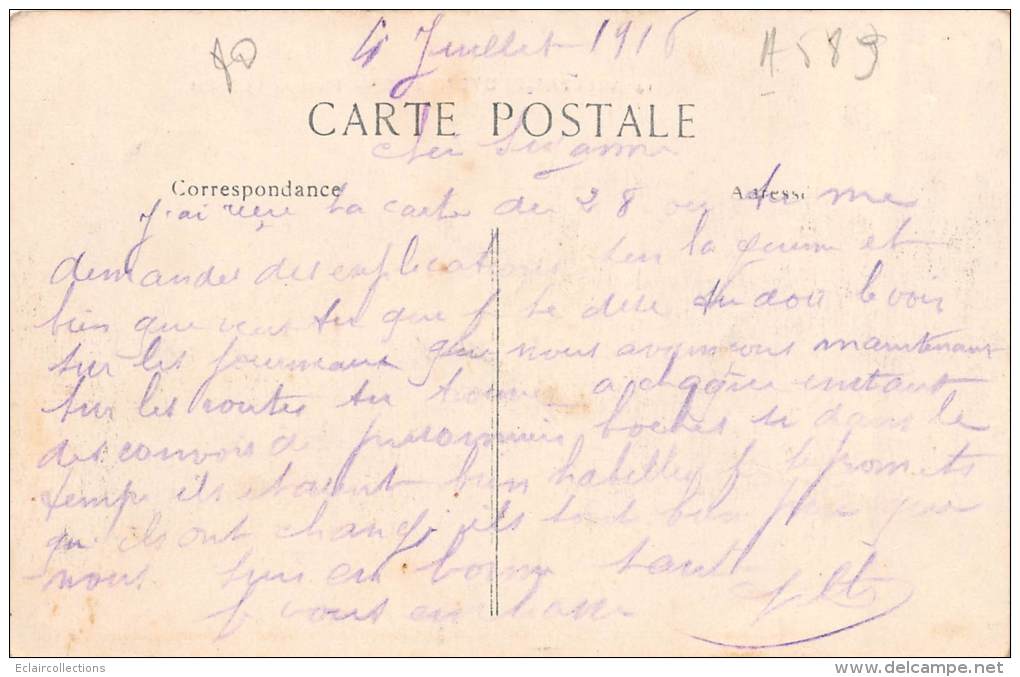 4 Juillet 1916
A 589
CARTE POSTALE
Suzanne
Correspondance
Adresse
J'ai reçu ta carte du 28 ou tu me
demandes des explications sur la guerre et
bien que veus tu que je te dise tu dois le voir
sur les journeaux que nous avançons maintenant
sur les routes tu a chaque instant
des convois de prisonniers boches si dans le
temp ils etaient bien habilley je te promets
qu'ils ont changé ils sont bien que
nous suis en bonne santé
je vous embrasse
Eclaircollections
www.delcampe.net